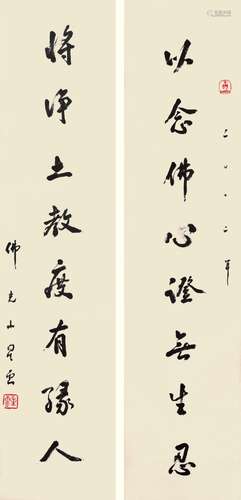 以念佛心證無生忍
二〇〇二年
將淨土教度有緣人
佛光山星雲